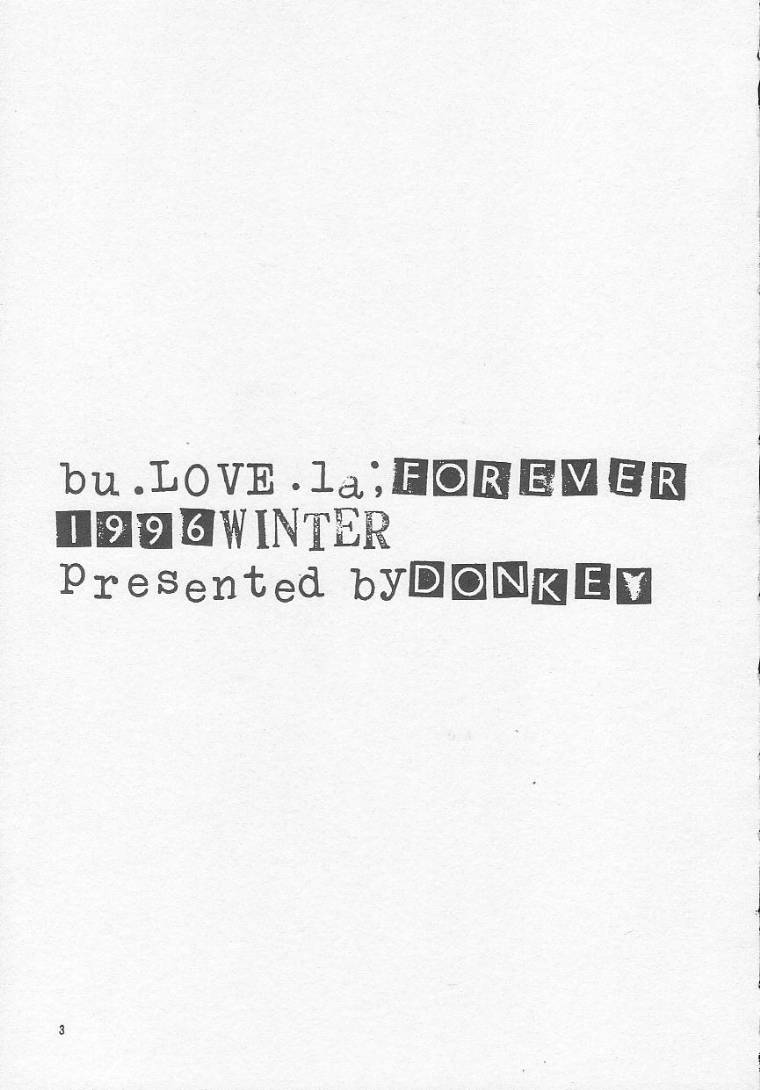 bu.LOVE.la;FOREVER
1996WINTER
presented byDONKEY
3